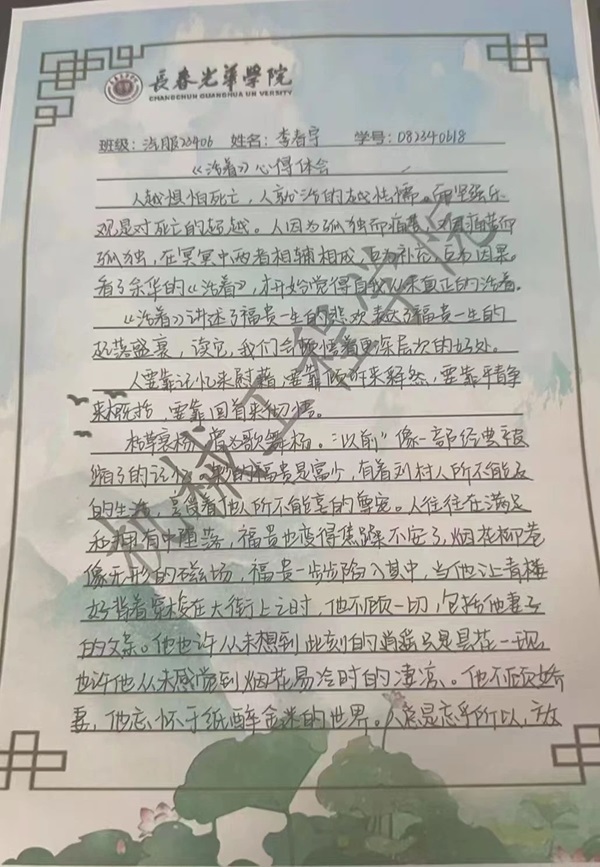 長春光華學院
CHANGCHUN GUANGHUA UNIVERSITY
班级：汽服23406 姓名：李春宇 学号：082340618
《活着》心得体会
人越惧怕死亡，人就活的越怯懦。而坚强乐
观是对死亡的超越。人因为孤独而痛苦，又因痛苦而
孤独，在冥冥中两者相辅相成，互为补充，互为因果。
看了余华的《活着》，才开始觉得自我从未真正的活着。
《活着》讲述了福贵一生的悲欢，表达了福贵一生的
起落盛衰，读它，我们会领悟着更深层次的好处。
人要靠记忆来慰藉，要靠倾听来释然，要靠平静
来概括，要靠回首来领悟。
枯草衰杨，曾为歌舞场。"以前"像一部经典被
缩了的记忆，那的福贵是富少，有着别村人所不能及
的生活，享受着他人所不能享的尊宠。人往往在满足
和拥有中堕落，福贵也变得焦躁不安了，烟花柳巷
像无形的磁场，福贵一步步陷入其中，当他让青楼
女背着穿梭在大街上之时，他不顾一切，包括他妻子
的父亲。他也许从未想到此刻的逍遥只是昙花一现
也许他从未感觉到烟花易冷时的凄凉。他不顾娇
妻，他忘怀于纸醉金迷的世界。人总是忘乎所以，放
机械工程学院